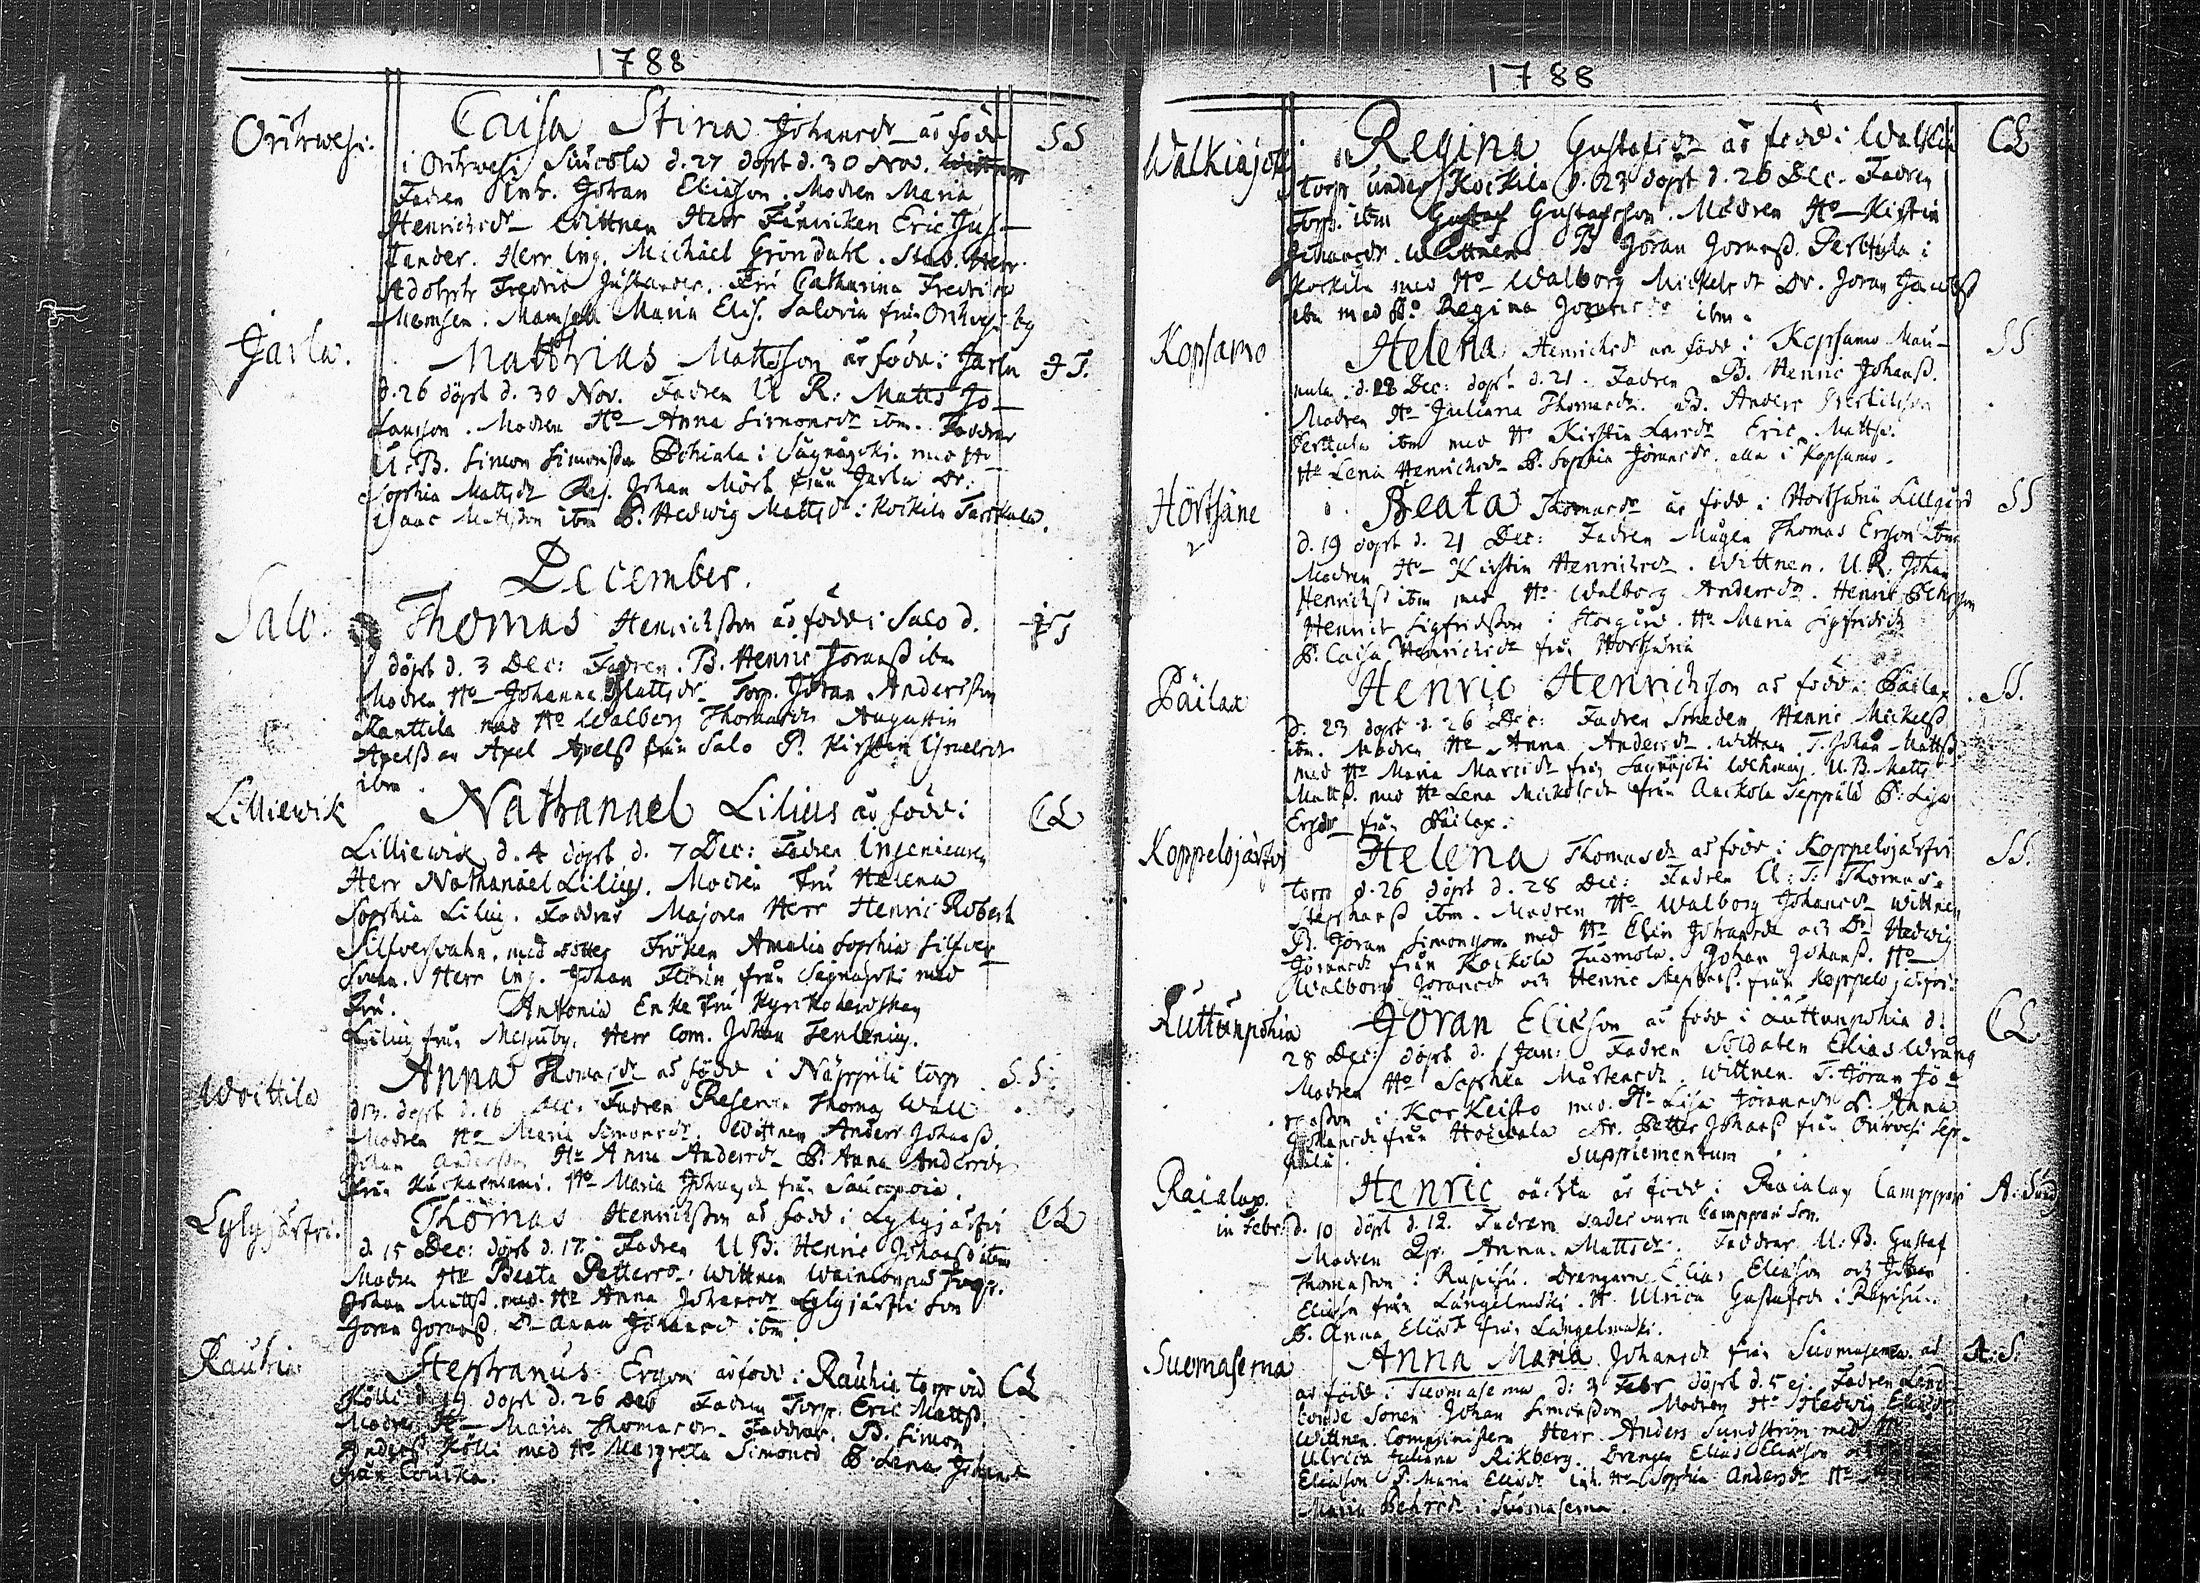 1788
Orihwesi. Caisa Stina Johansdr är född SS
i Orihwesi Siucola d. 27 döpt d. 30 Nov.
Fadren Inh. Johan Eliasson. Modren Maria
Henrichsdr Wittnen Herr Fänricken Eric Gus-
tander. Herr Ing. Michäel Gröndahl. Stud. Herr
Adolph Fredric Gustander. Fru Catharina Fredrica
Memsen. Mamsell Maria Elis. Salovia från Orihvesi by
Jarla. Matthias Mattsson är född i Jarla JT.
d. 26 döpt d. 30 Nov. Fadren U R: Matts Jo-
hansson. Modren Ho Anna Simonsdr ibm. Faddrar
U. B. Simon Simonsson Pohiala i Sagnågski med Ho
Sophia Mattsdr Johan Mört från Jarla Dr.
Isaac Mattsson ibm P. Hedwig Mattsdr i Kockila
December.
Salo. Thomas Henrichsson är född i Salo d. JT
1 döpt d. 3 Dec: Fadren. B. Henric Joranss ibm
Modren Ho Johanna Mattsdr Torp. Göran Andersson
Manttila med Ho Walborg Thomasdr Augustin
Axelss an Axel Axelss från Salo P. Kirstin Israelsdr
ibm.
Lilliewik Nathanael Lilius är född i CL
Lilliewik d. 4 döpt d. 7 Dec: Fadren Ingenieuren
Herr Nathanäel Lilius. Modren Fru Helena
Sophia Lilius. Faddrar Majoren Herr Henric Robert
Silfversvahn, med dotter Fröken Amalia Sophia Silfver-
svahn. Herr Ing. Johan Florin från Sagnågski med
Fru. Antonia Enke Fru Kyrkoherdskan
Lilius från Mespuby, Herr Com. Johan Tenlenius.
Woittila Anna Thomasdr är född i Näppilä torp S. S.
d 13. döpt d. 16 Dec. Fadren Reserven Thomas Wall
Modren Ho Maria Simonsdr. Wittnen Anders Johanss
Johan Andersson Ho Anna Andersdr P. Anna Andersdr
från Ho Maria Johansdr från
Lylyjärfvi. Thomas Henrichsson är född i Lylyjärfvi CL
d. 15 Dec: döpt d. 17. Fadren U B. Henric Johanss ibm
Modren Ho Beata Pettersdr Wittnen Wainionpää Torp.
Johan Mattss. med Ho Anna Johansdr Lylyjärfvi Son
Joran Joranss. Dr Anna Johansdr ibm.
Rauhia Stephanus Ersson är född i Rauhia torp vid CL
Kölli d. 19 döpt d. 26 Dec Fadren Torp. Eric Mattss.
Modren Ho Maria Thomasdr. Faddrar. B. Simon
Anderss. Kölli med Ho Margreta Simonsd P. Lena Johansdr
från
1788
Walkiajoki Regina Gustafsdr är född i Walkia CL
torp under Kockila d. 23 döpt d. 26 Dec. Fadren
Torp. ibm Gustaf Gustafsson. Modren Ho Kirstin
Johansdr. Wittnen B Joran Joranss. Perttula i
Kockila med Ho Walborg Mickelsdr Dr. Joran Jacobss
ibm med Po Regina ibm.
Kopsamo Helena Henrichsdr är född i Kopsamo Mau- SS
nula d. 18 Dec: döpt d. 21. Fadren B. Henric Johanss.
Modren Ho Juliana Thomasdr. B. Anders
Perttula ibm med Ho Kirstin Larsdr Eric Mattss.
Ho Lena Henrichsdr P. Sophia Joransdr. alla i Kopsamo.
Hörtsäne Beata Thomasdr är född i Hörtsänä Lillgård SS
d. 19 döpt d. 21 Dec: Fadren Mågen Thomas Erson ibm
Modren Ho Kirstin Henrichsdr. Wittnen. U. R. Johan
Henrichss ibm med Ho Walborg Andersdr. Henric
Henric Sigfridsson i Storgård. Ho Maria Sigfridsdr
P. Caisa Henrichsdr från Hortsänä
Päilax Henric Henrichsson är född i Päilax SS.
d. 23 döpt d. 26 Dec: Fadren Smeden Henric Mickelss
ibm. Modren Ho Anna Andersdr. Wittnen T. Johan Mattss
med Ho Maria Marcsdr från U. B. Matts
Mattss. med Ho Lena Mickelsdr från Aackola Seppälä P. Lisa
Ersdr från Päilax.
Koppelojärfvi Helena Thomasdr är född i Koppelojärfvi SS.
torp d. 26 döpt d. 28 Dec: Fadren U: T: Thomas
Stephanss ibm. Modren Ho Walborg Johansdr Wittnen
B. Joran Simonsson med Ho Elin Johansdr och Dr Hedwig
Joransdr från Kockola Tuomola. Johan Johanss. Ho
Walborg Joransdr och Henric Stephanss. från Koppelojärfvi
Kuttunpohia Göran Eliason är född i Kuttunpohia d. CL
28 Dec: döpt d. 1 Jan: Fadren Soldaten Elias Wrång
Modren Ho Sophia Mårtensdr. Wittnen. T. Göran Jö-
ransson i Korkeisto med. Ho Lisa Joransdr P. Anna
Johansdr från Hoiwala Dr. Petter Johanss från Orivesi Sep-
pälä.
Supplementum
Raialax Henric oächta är född i Raialax Lamppari A: Sund
in Febr. d. 10 döpt d. 12. Fadren säges vara Lamppari Son.
Modren Qp. Anna Mattsdr. Faddrar U. B. Gustaf
Thomasson i Rapisu. Drengarne Elias Eliasson och Johan
Eliason från Längelmäki. H. Ulrica Gustafsdr i Rapisu.
P. Anna Eliædr från Längelmäki.
Suomasema Anna Maria Johansdr från Suomasema är A: S.
är född i Suomasema d: 3 Febr döpt d. 5 ej. Fadren Land-
bonde Sonen Johan Simonsson Modren Ho Hedwig Eliædr
Wittnen Comministern Herr Anders Sundström med
Ulrica Juliana Rikberg. Drengen Elias Eliasson och
Eliasson P. Maria Eliædr Inh. Ho Sophia Andersdr Ho
Maria Pehrsdr i Suomasema.